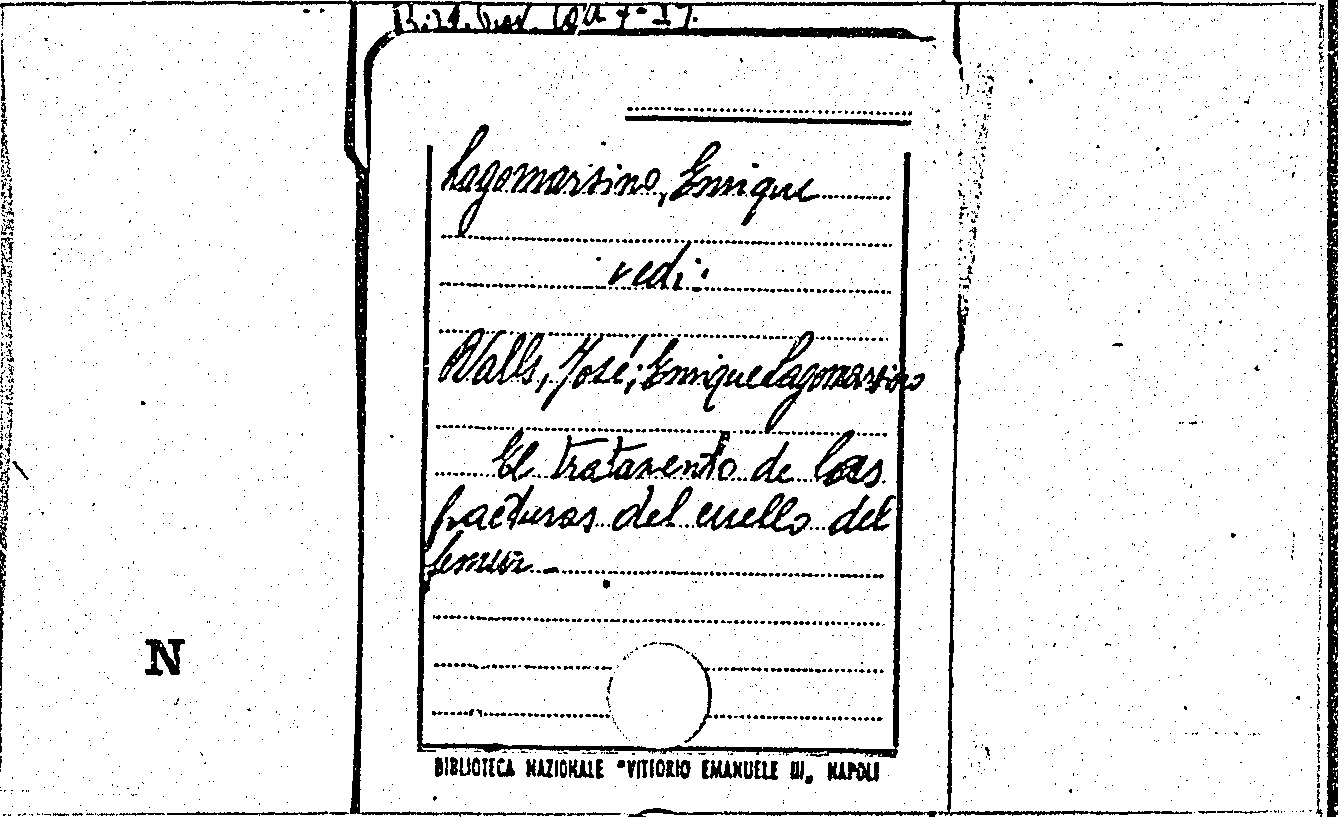 Lagomarsino, Enrique
vedi:
Valls, José; Enrique Lagomarsino
El tratamento de las
fracturas del cuello del
femur
N
BIBLIOTECA NAZIONALE "VITTORIO EMANUELE III„ NAPOLI